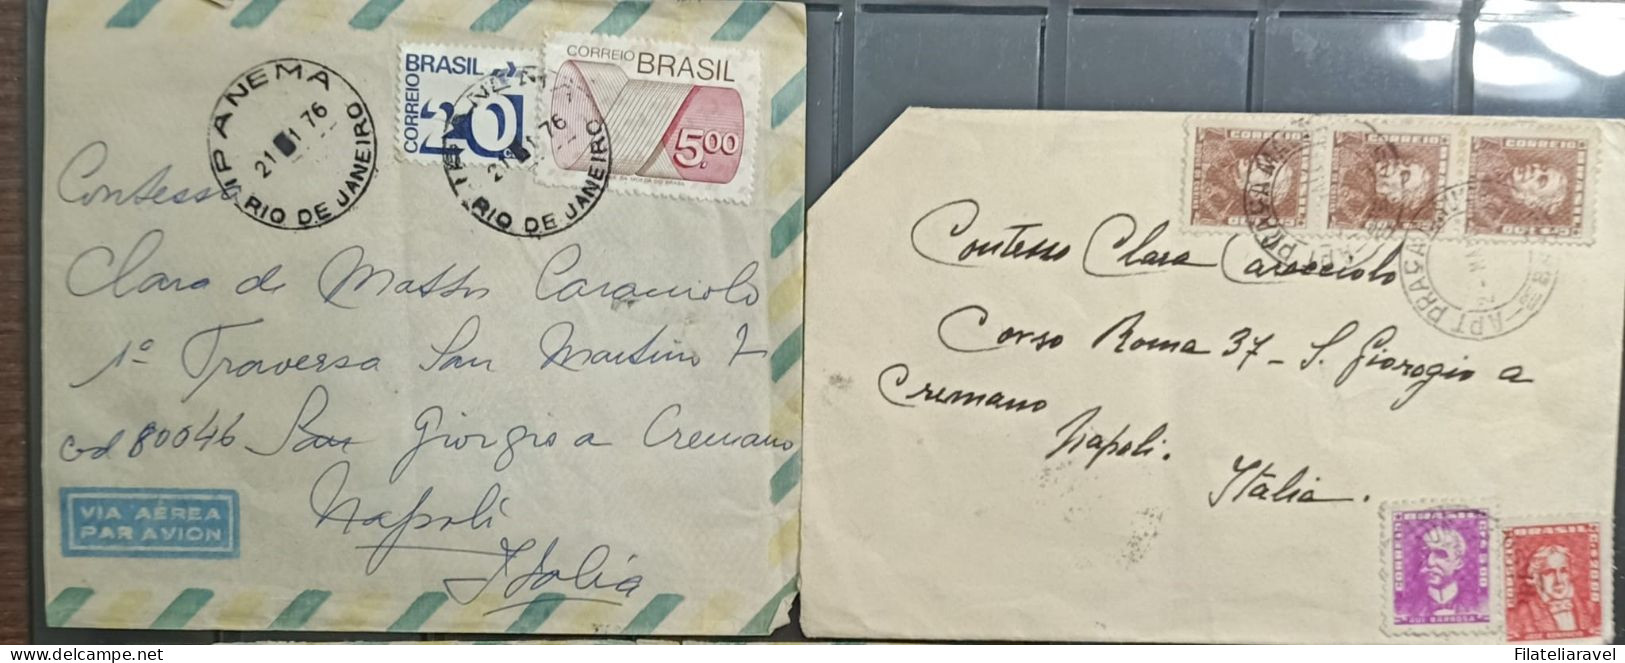 IPANEMA
21 1 76
RIO DE JANEIRO
CORREIO
BRASIL
20
CORREIO BRASIL
5,00
21 1 76
RIO DE JANEIRO
Contessa
Clara de Matto Caracciolo
1º Traversa San Martino 7
cod 80046 San Giorgio a Cremano
Napoli
Italia
VIA AÉREA
PAR AVION
CORREIO
CORREIO
CORREIO
BRASIL
Contessa Clara Caracciolo
Corso Roma 37 - S. Giorogio a
Cremano
Napoli.
Italia.
BRASIL
CORREIO
RUI BARBOSA
BRASIL
CORREIO
JOSÉ BONIFACIO
Filateliaravel